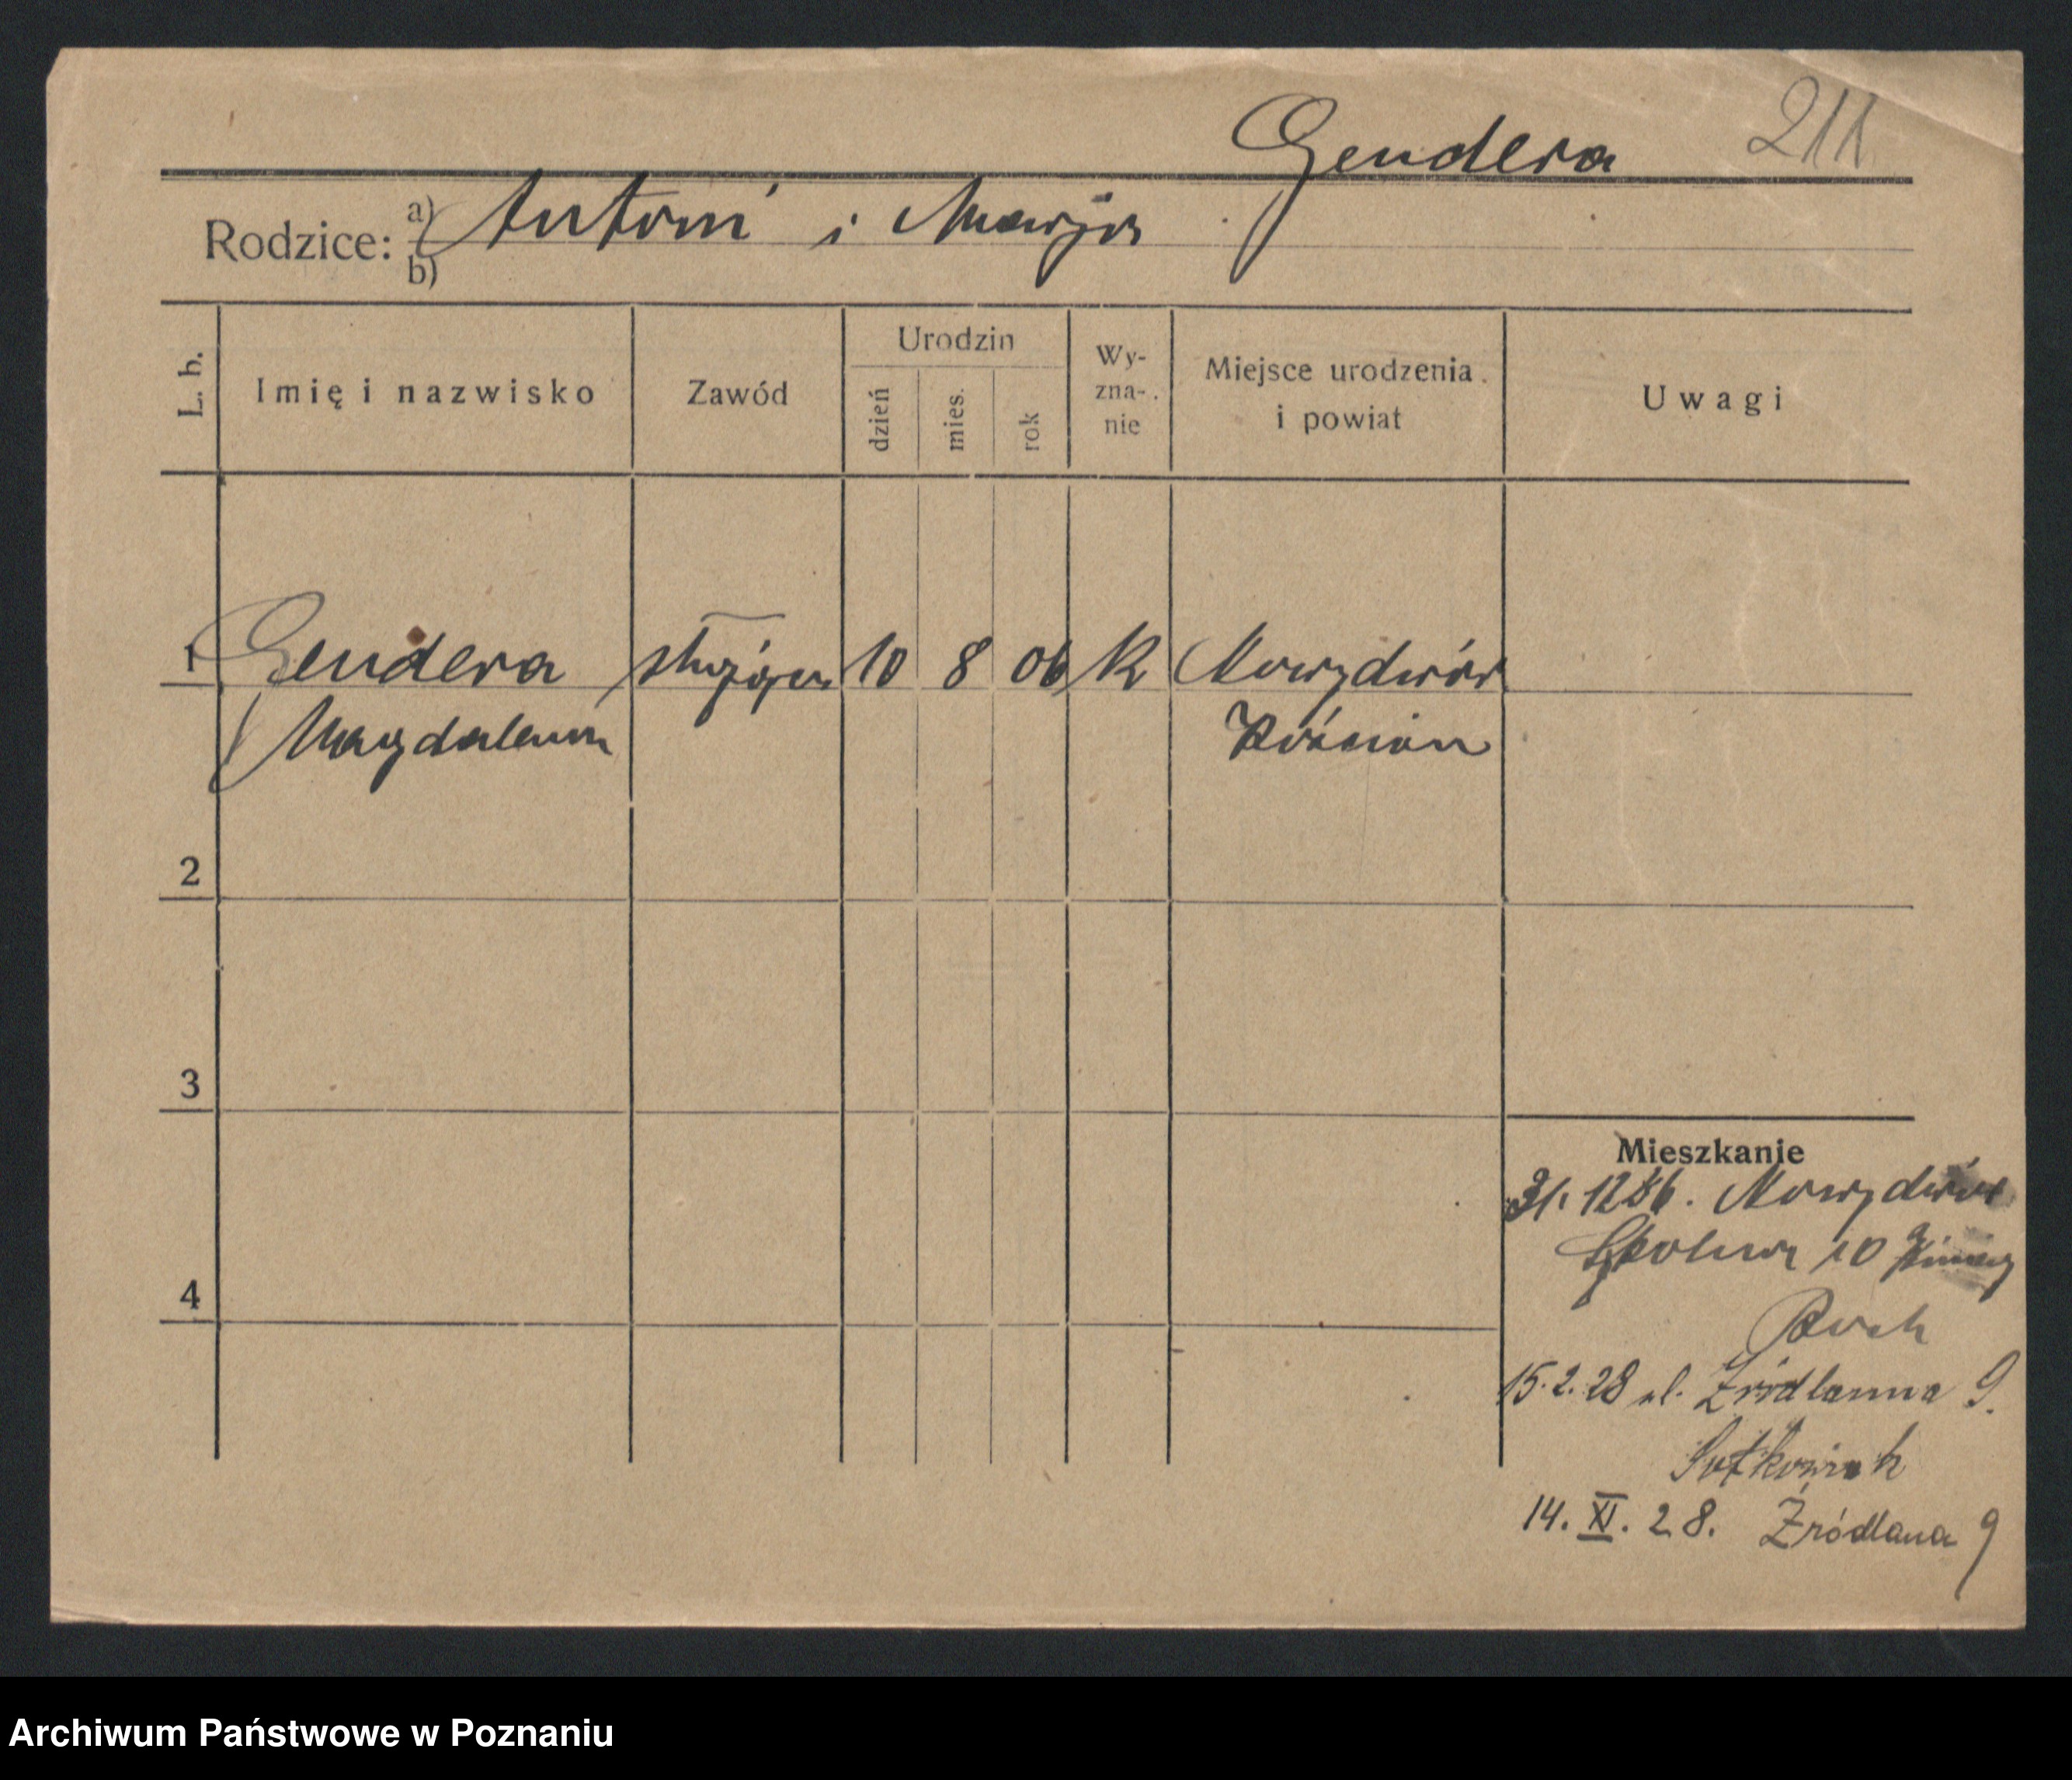 Gendera 211
Rodzice: a) Antoni i Marja
b)
L. b.
Imię i nazwisko
Zawód
Urodzin
dzień
mies.
rok
Wy-
zna-
nie
Miejsce urodzenia
i powiat
Uwagi
1 Gendera służąca 10 8 06 k Nowydwór
Magdalena Kościan
2
3
4
Mieszkanie
31. 12 Nowydwór
Szkolna 10
15.2.28 ul. Źródlanna 9.
14. XI. 28. Źródlana 9
Archiwum Państwowe w Poznaniu